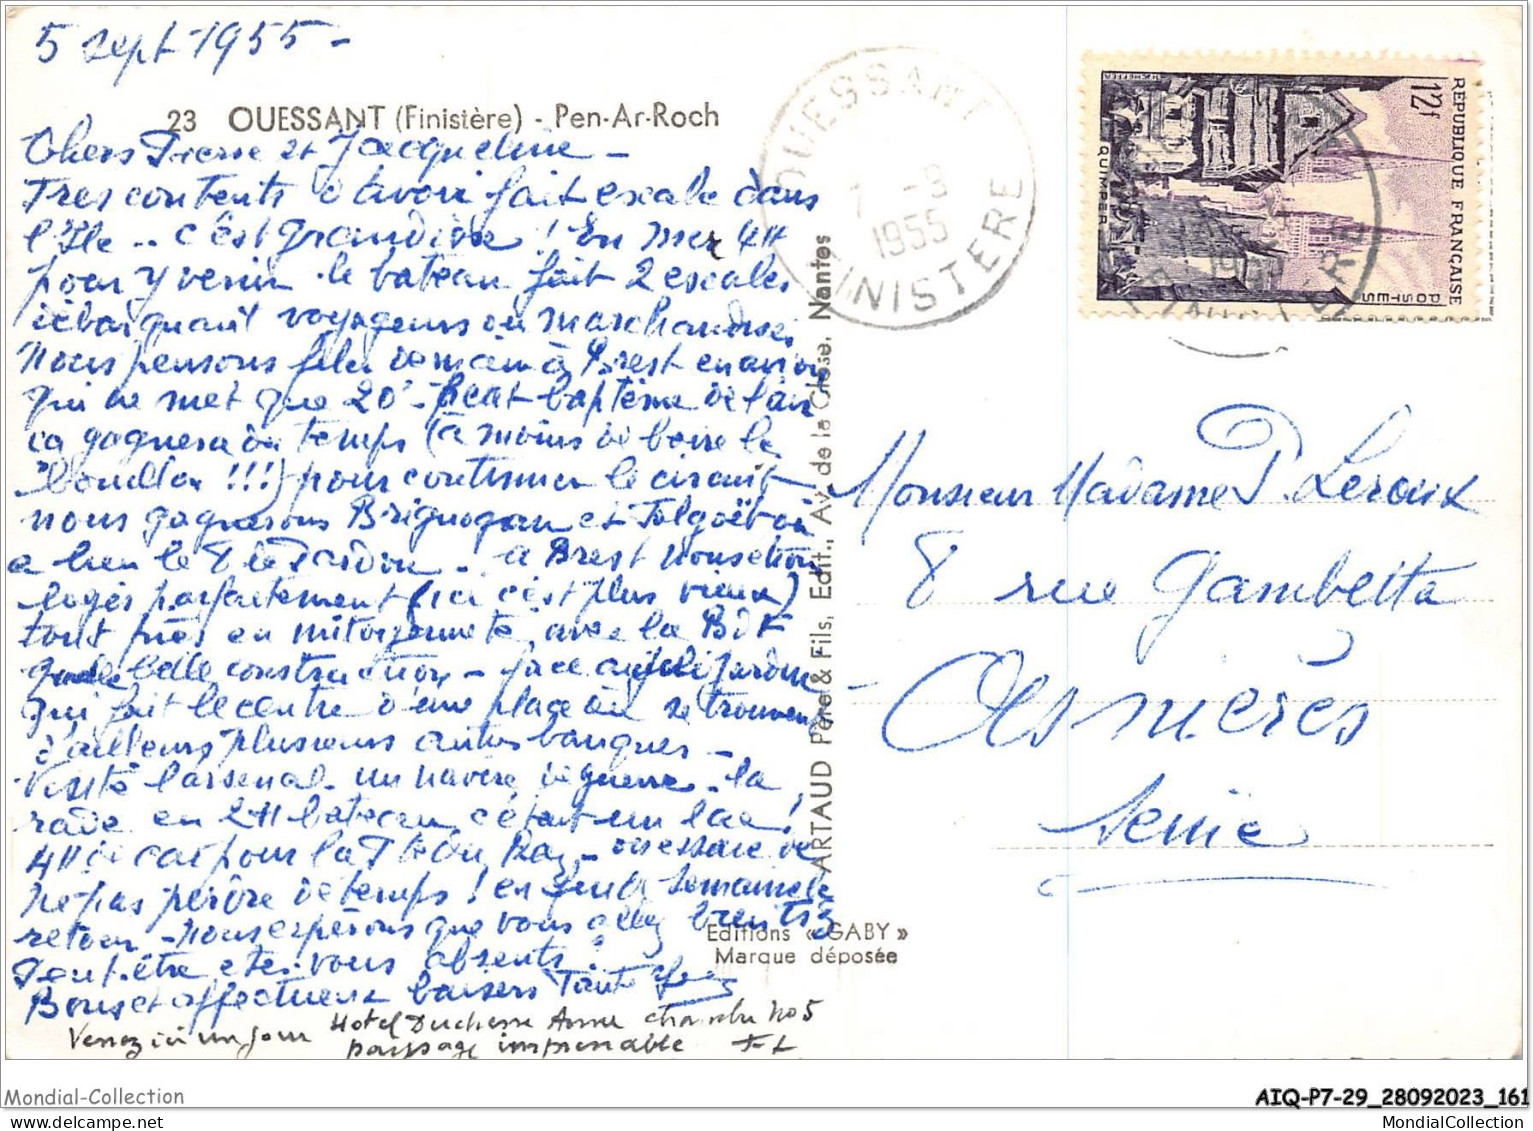 5 sept 1955 -
23 OUESSANT (Finistère) - Pen-Ar-Roch
Chers Pierre et Jacqueline -
Tres contents d'avoir fait escale dans
l'Ile .. c'est grandiose ! En mer 4H
pour y venir le bateau fait 2 escales
débarquant voyageurs ou marchandises
Nous pensons filer demain à Brest en avion
qui ne met que 20' - baptême de l'air
ça gagnera du temps (à moins de boire le
bouillon !!!) pour continuer le circuit
nous gagnerons Brignogan et Folgoët où
a lieu le 8 le Pardon - à Brest nous étions
logés parfaitement (ici c'est plus vieux)
tout près en mitoyenneté avec la BDF
quelle belle construction - face au joli jardin
qui fait le centre d'une place où se trouvent
d'ailleurs plusieurs autres banques -
Visité l'arsenal un navire de guerre - la
rade en 2H bateau c'était un lac !
4H de car pour la Pte du Raz - on essaie de
ne pas perdre de temps ! en fin de semaine le
retour - nous espérons que vous allez bien tous
Peut-être etes-vous absents ?
Bons et affectueux baisers Tante
Venez ici un jour Hotel Duchesse Anne chambre no 5
paysage imprenable
OUESSANT
7 -9
1955
FINISTERE
REPUBLIQUE FRANÇAISE
12f
POSTES
QUIMPER
ARTAUD Père & Fils, Edit., Av. de la Close, Nantes
Editions « GABY »
Marque déposée
Monsieur Madame P. Leroux
8 rue Gambetta
Asnières
Seine
Mondial-Collection
AIQ-P7-29_28092023_161
MondialCollection